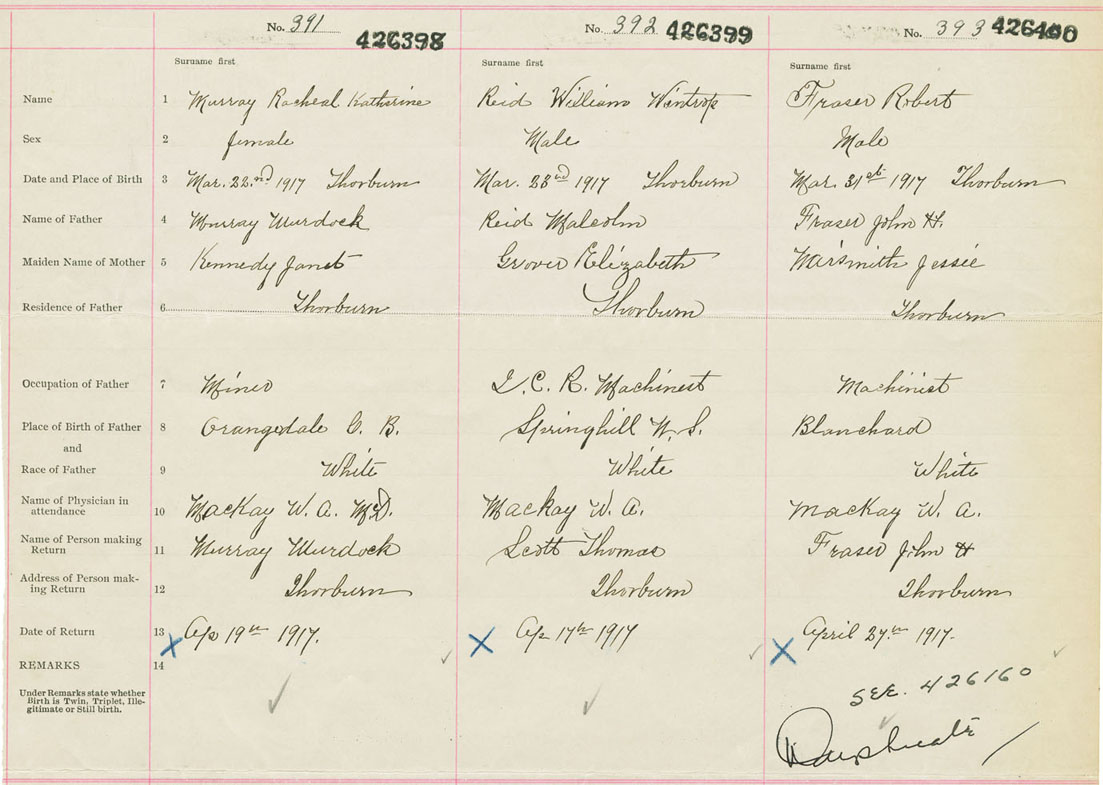 No. 391 426398 No. 392 426399 No. 393 426400
Surname first Surname first Surname first
Name 1 Murray Racheal Katherine Reid William Wintrop Fraser Robert
Sex 2 female Male Male
Date and Place of Birth 3 Mar. 22nd 1917 Thorburn Mar. 28nd 1917 Thorburn Mar. 31st 1917 Thorburn
Name of Father 4 Murray Murdock Reid Malcolm Fraser John H.
Maiden Name of Mother 5 Kennedy Janet Grover Elizabeth Jessie
Residence of Father 6 Thorburn Thorburn Thorburn
Occupation of Father 7 Miner I.C.R. Machinest Machinist
Place of Birth of Father 8 Orangedale C. B. Springhill N.S. Blanchard
and
Race of Father 9 White White White
Name of Physician in
attendance 10 MacKay W. A. M.D. Mackay W. A. MacKay W. A.
Name of Person making
Return 11 Murray Murdock Scott Thomas Fraser John H
Address of Person mak-
ing Return 12 Thorburn Thorburn Thorburn
Date of Return 13 X Ap 19th 1917. X Ap 17th 1917 X April 27th 1917.
REMARKS 14
SEE. 426160
Under Remarks state whether
Birth is Twin, Triplet, Ille-
gitimate or Still birth.
Duplicate